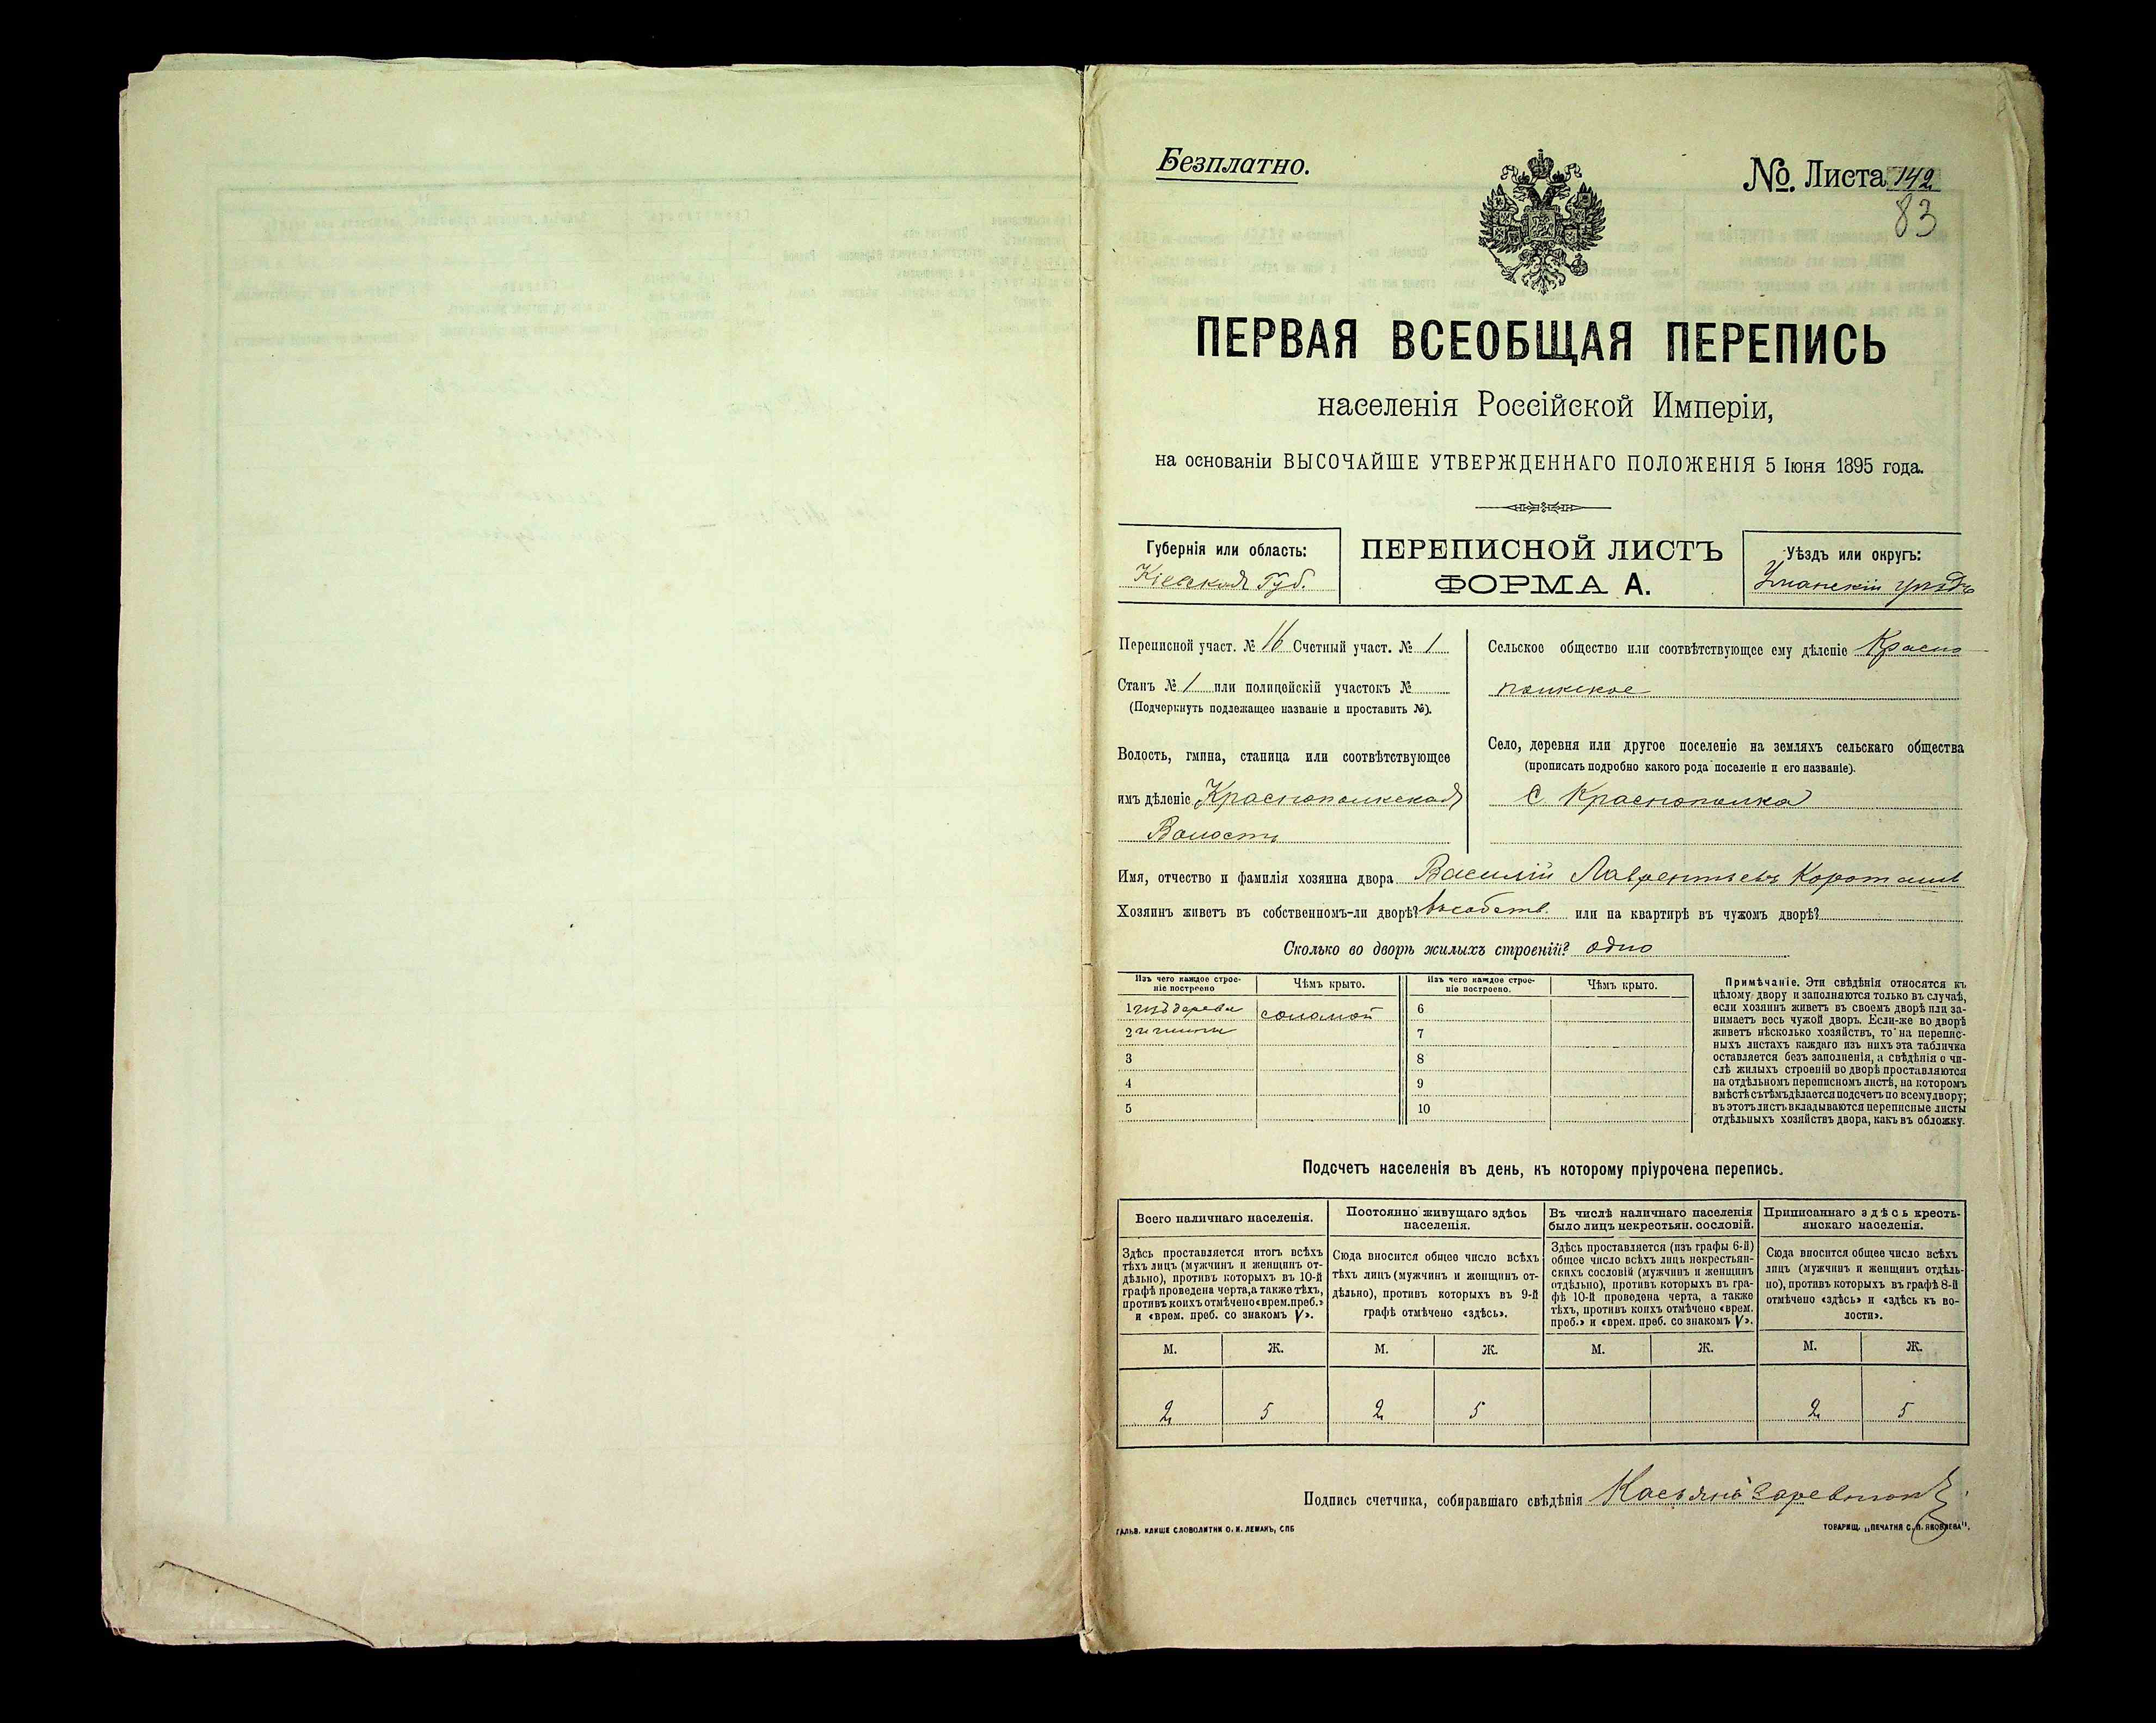 Безплатно.
№. Листа 142
83
ПЕРВАЯ ВСЕОБЩАЯ ПЕРЕПИСЬ
населенія Россійской Имперіи,
на основаніи ВЫСОЧАЙШЕ УТВЕРЖДЕННАГО ПОЛОЖЕНІЯ 5 Іюня 1895 года.
Губернія или область:
Кіевская Губ.
ПЕРЕПИСНОЙ ЛИСТЪ
ФОРМА А.
Уѣздъ или округъ:
Уманскій уѣздъ
Переписной участ. № 16 Счетный участ. № 1
Станъ № 1 или полицейскій участокъ №
(Подчеркнуть подлежащее названіе и проставить №).
Волость, гмина, станица или соотвѣтствующее
имъ дѣленіе Краснополкская
Волость
Сельское общество или соотвѣтствующее ему дѣленіе Красно
полкское
Село, деревня или другое поселеніе на земляхъ сельскаго общества
(прописать подробно какого рода поселеніе и его названіе).
С. Краснополка
Имя, отчество и фамилія хозяина двора Василій Лаврентьевъ
Хозяинъ живетъ въ собственномъ-ли дворѣ? въ собств. или на квартирѣ въ чужомъ дворѣ?
Сколько во дворѣ жилыхъ строеній? одно
Изъ чего каждое строе-
ніе построено
Чѣмъ крыто.
Изъ чего каждое строе-
ніе построено.
Чѣмъ крыто.
1 изъ дерева соломой 6
2 и глины 7
3 8
4 9
5 10
Примѣчаніе. Эти свѣдѣнія относятся къ
цѣлому двору и заполняются только въ случаѣ,
если хозяинъ живетъ въ своемъ дворѣ или за-
нимаетъ весь чужой дворъ. Если-же во дворѣ
живетъ нѣсколько хозяйствъ, то на перепис-
ныхъ листахъ каждаго изъ нихъ эта табличка
оставляется безъ заполненія, а свѣдѣнія о чи-
слѣ жилыхъ строеній во дворѣ проставляются
на отдѣльномъ переписномъ листѣ, на которомъ
вмѣстѣ сътѣмъ дѣлается подсчетъ по всему двору;
въ этотъ листъ вкладываются переписные листы
отдѣльныхъ хозяйствъ двора, какъ въ обложку.
Подсчетъ населенія въ день, къ которому пріурочена перепись.
Всего наличнаго населенія.
Здѣсь проставляется итогъ всѣхъ
тѣхъ лицъ (мужчинъ и женщинъ от-
дѣльно), противъ которыхъ въ 10-й
графѣ проведена черта, а также тѣхъ,
противъ коихъ отмѣчено «врем. преб.»
и «врем. преб. со знакомъ V».
Постоянно живущаго здѣсь
населенія.
Сюда вносится общее число всѣхъ
тѣхъ лицъ (мужчинъ и женщинъ от-
дѣльно), противъ которыхъ въ 9-й
графѣ отмѣчено «здѣсь».
Въ числѣ наличнаго населенія
было лицъ некрестьян. сословій.
Здѣсь проставляется (изъ графы 6-й)
общее число всѣхъ лицъ некрестьян-
скихъ сословій (мужчинъ и женщинъ
отдѣльно), противъ которыхъ въ гра-
фѣ 10-й проведена черта, а также
тѣхъ, противъ коихъ отмѣчено «врем.
преб.» и «врем. преб. со знакомъ V».
Приписаннаго здѣсь кресть-
янскаго населенія.
Сюда вносится общее число всѣхъ
лицъ (мужчинъ и женщинъ отдѣль-
но), противъ которыхъ въ графѣ 8-й
отмѣчено «здѣсь» и «здѣсь къ во-
лости».
М. Ж. М. Ж. М. Ж. М. Ж.
2 5 2 5 2 5
Подпись счетчика, собиравшаго свѣдѣнія
ГАЛЬВ. КЛИШЕ СЛОВОЛИТНИ О. И. ЛЕМАНЪ, СПБ
ТОВАРИЩ. „ПЕЧАТНЯ С. П. ЯКОВЛЕВА".